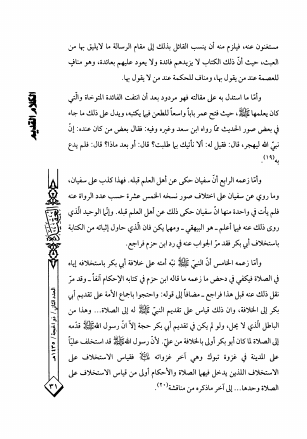 مستغنون عنه، فيلزم منه أن ينسب القائل بذلك إلى مقام الرسالة ما لايليق بها من
العبث، حيث أنّ ذلك الكتاب لا يزيدهم فائدة ولا يعود عليهم بعائدة، وهو منافٍ
للعصمة عند من يقول بها، ومناف للحكمة عند من لا يقول بها.
وأمّا ما استدل به على مقالته فهو مردود بعد أن انتفت الفائدة المتوخاة والّتي
كان يعلمها ﷺ، حيث فتح عمر باباً واسعاً للطعن فيها يكتبه، ويدل على ذلك ما جاء
في بعض صور الحديث ممّا رواه ابن سعد وغيره وفيه: فقال بعض من كان عنده: إنّ
نبيّ الله ليهجر، قال: فقيل له: ألا نأتيك بما طلبت؟ قال: أو بعد ماذا؟ قال: فلم يدع
به(١٩).
وأمّا زعمه الرابع أنّ سفيان حكى عن أهل العلم قبله. فهذا كذب على سفيان،
وما روي عن سفيان على اختلاف صور نسخه الخمس عشرة حسب عدد الرواة عنه
فلم يأت في واحدة منها انّ سفيان حكى ذلك عن أهل العلم قبله. وإنّما الوحيد الّذي
روى ذلك عنه فيما أعلم ـ هو البيهقي ـ ومهما يكن فان الّذي حاول إثباته من الكتابة
باستخلاف أبي بكر فقد مرّ الجواب عنه في رد ابن حزم فراجع.
وأمّا زعمه الخامس أنّ النبيّ ﷺ نبّه أمته على خلافة أبي بكر باستخلافه إياه
في الصلاة فيكفي في دحض ما زعمه ما قاله ابن حزم في كتابه الإحكام آنفاً ـ وقد مرّ
نقل ذلك عنه قبل هذا فراجع ـ مضافاً إلى قوله: واحتجوا بإجماع الأمة على تقديم أبي
بكر إلى الخلافة، وان ذلك قياس على تقديم النبيّ ﷺ له إلى الصلاة... وهذا من
الباطل الّذي لا يحل، ولو لم يكن في تقديم أبي بكر حجة إلّا انّ رسول الله ﷺ قدّمه
إلى الصلاة لما كان أبو بكر أولى بالخلافة من عليّ. لأنّ رسول الله ﷺ قد استخلف عليّاً
على المدينة في غزوة تبوك وهي آخر غزواته ﷺ فقياس الاستخلاف على
الاستخلاف اللذين يدخل فيهما الصلاة والأحكام أولى من قياس الاستخلاف على
الصلاة وحدها... إلى آخر ماذكره من مناقشة(٢٠).
العدد الثاني / ذو الحجة / ١٤٣٥هـ
٣١